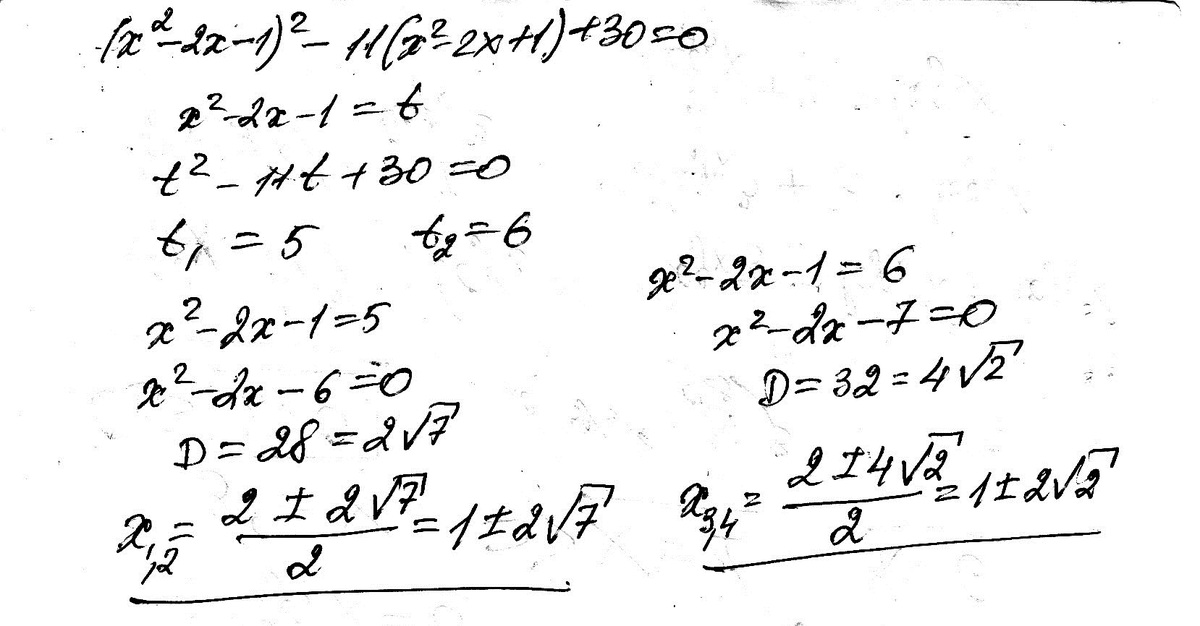 (x²-2x-1)² - 11(x²-2x+1)+30=0
x²-2x-1 = t
t² - 11t + 30 = 0
t₁ = 5 t₂ = 6
x²-2x-1=5
x²-2x-6=0
D = 28 = 2√7
x₁,₂ = (2 ± 2√7)/2 = 1 ± 2√7
x²-2x-1 = 6
x²-2x-7=0
D = 32 = 4√2
x₃,₄ = (2 ± 4√2)/2 = 1 ± 2√2